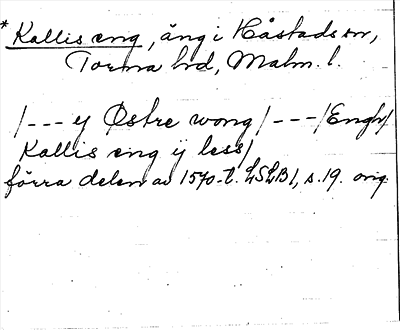 * Kallis eng, äng i Håstads sn,
Torna hd, Malm. l.
/--- y Østre wong /---/Engh/
Kallis eng ij less/
förra delen av 1570-t. LSLB 1, s. 19. orig.